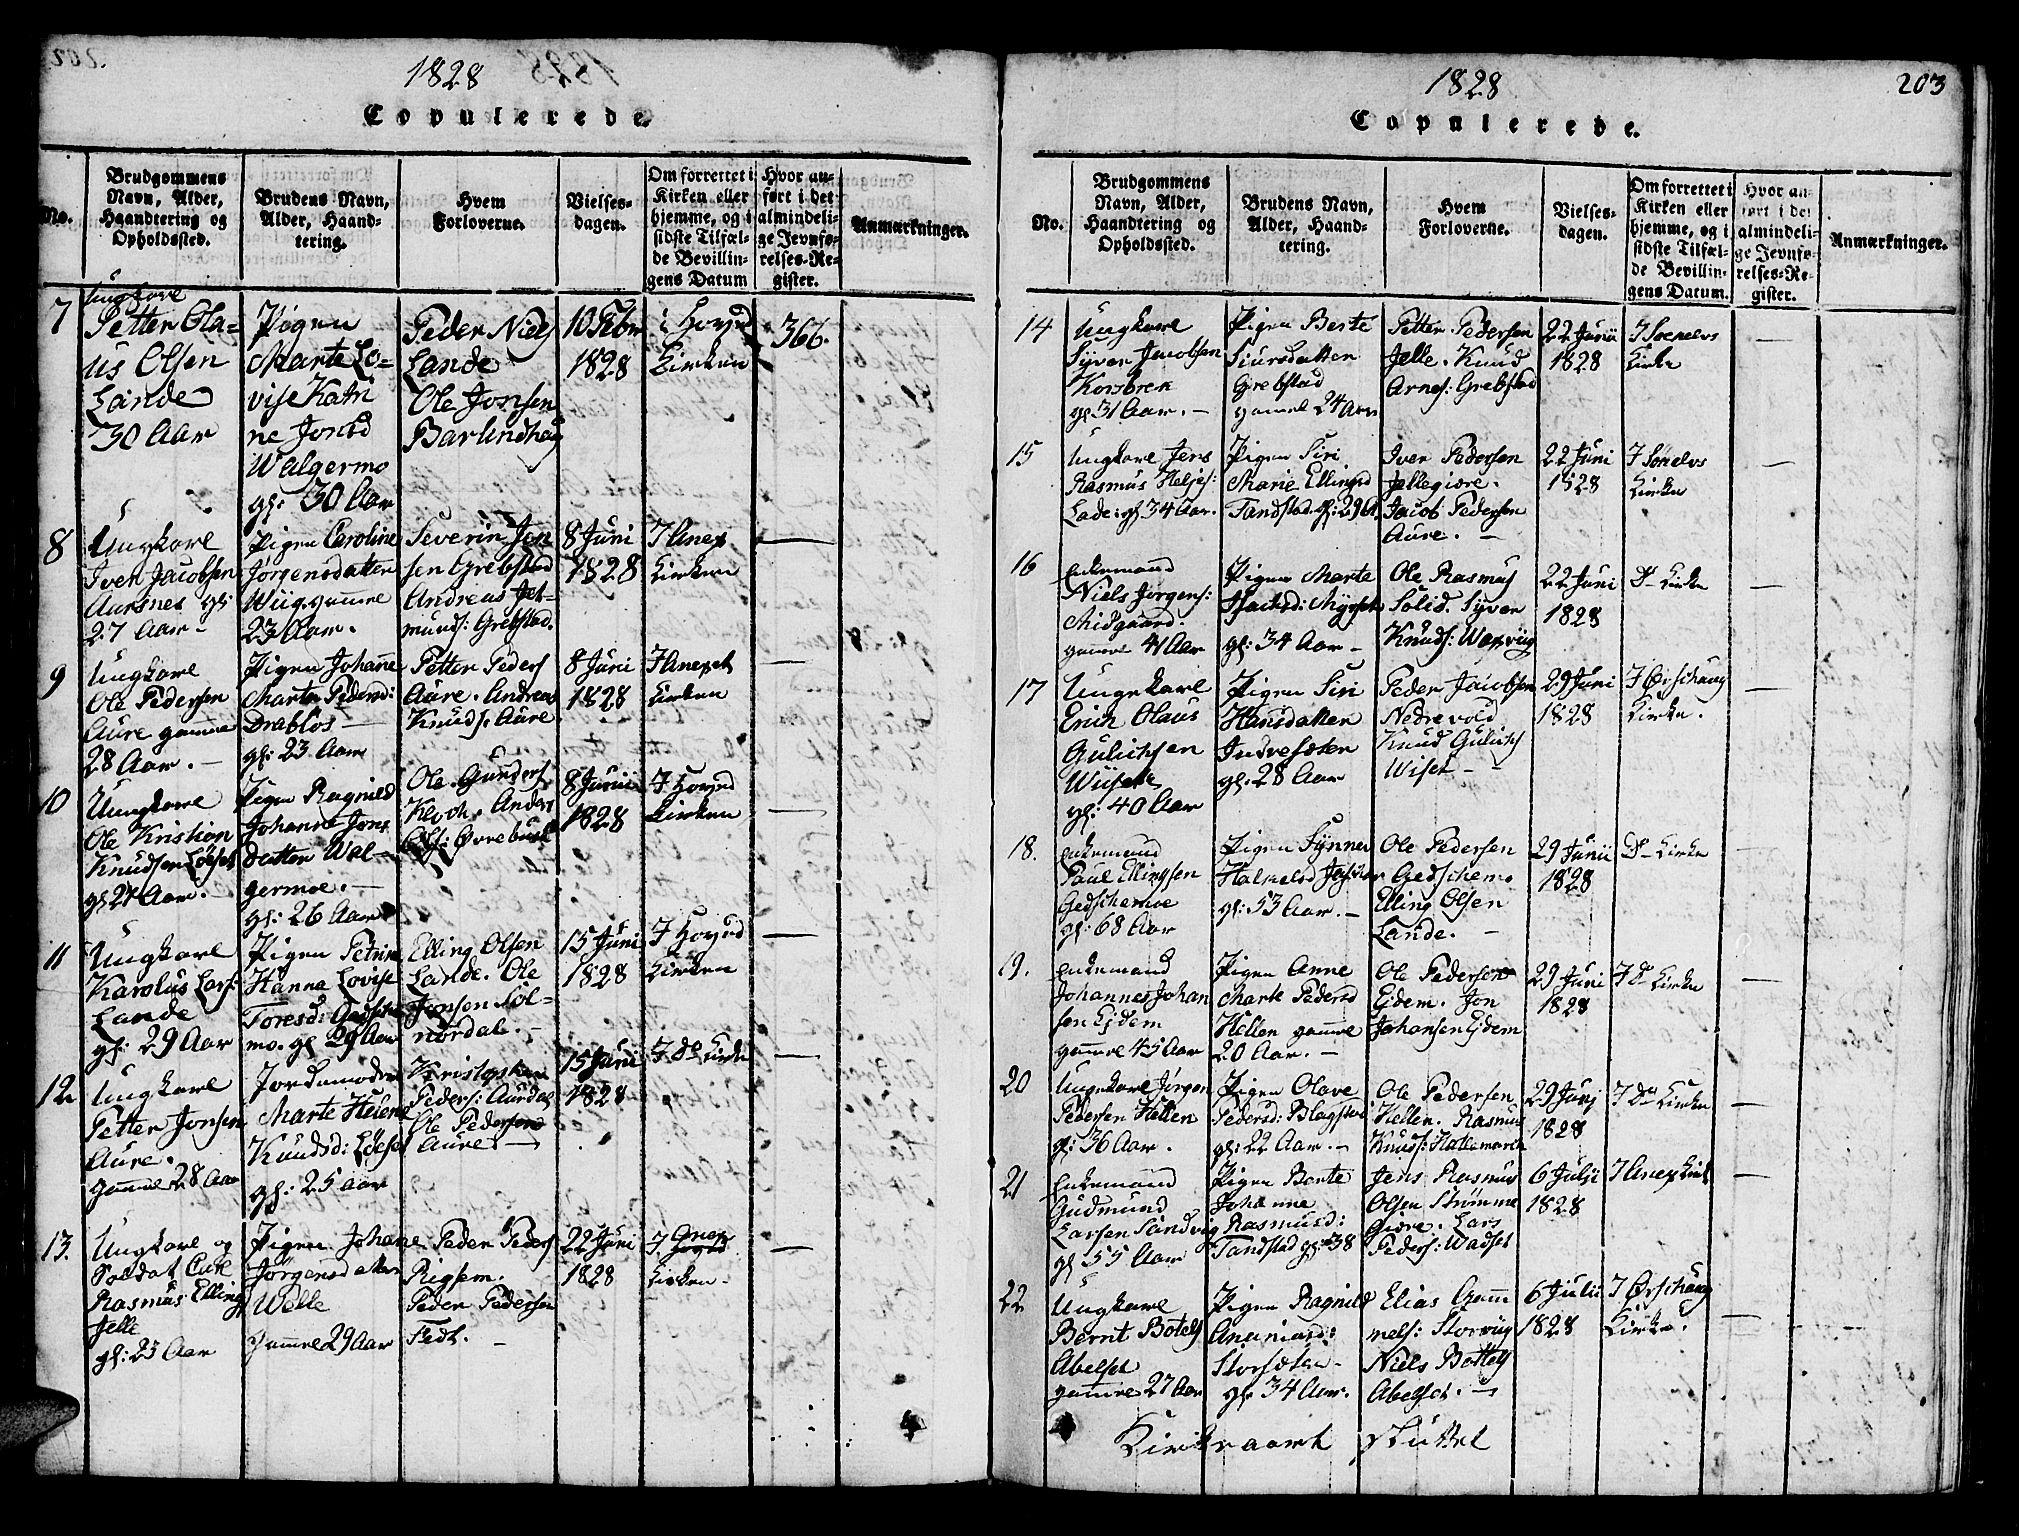 1828
Copulerede.
No.
Brudgommens Navn, Alder, Haandtering og Opholdssted.
Brudens Navn, Alder, Haandtering.
Hvem Forloverne.
Vielsesdagen.
Om forrettet i Kirken eller hjemme, og i sidste Tilfælde Bevillingens Datum
Hvor anført i det almindelige Jevnførelses-Register.
Anmærkninger.
7
Ungkarl
Petter Ola=
us Olsen
Lande
30 Aar
Pigen
Marte Lo=
vise Katri
ne Jonsd
Walgermo
gl: 30 Aar
Peder Niels
Lande
Ole Jonsen
Barlindhaug
10 Febr
1828
i Hovud
Kirken
366.
8
Ungkarl
Iver Jacobsen
Aursnes gl:
27 Aar -
Pigen Caroline
Jørgensdatter
Wiig gamel
23 Aar.
Severin Jen
sen Grebstad
Andreas Jet=
munds: Grebstad.
8 Juni
1828
I Anex
Kirken
9
Ungkarl
Ole Pedersen
Aure gammel
28 Aar. -
Pigen Johanne
Marte Pedersd:
Drabløs
gl: 23 Aar
Petter Peders
Aure. Andreas
Knuds: Aure
8 Juni
1828
I Anexet
Kirken
10
Ungkarl
Ole Kristian
Knudsen Løeset
gl 27 Aar. -
Pigen Ragnild
Johanne Jons
datter Wal=
germoe. -
gl: 26 Aar
Ole Gunders
Klock. Anders
Ols: Øvrebust
8 Junii
1828
I Hovud
Kirken
11
Ungkarl
Karolus Lars:
Lande
gl: 29 Aar
Pigen Petrine
Hanna Lovise
Toresd:
mo. gl 29 Aar
Elling Olsen
Lande. Ole
Jensen Sol=
nørdale. -
15 Juni
1828
I Hovud
Kirken
12
Ungkarl
Petter Jonsen
Aure.
Gammel 28 Aar
Jordemoder
Marte Helene
Knudsd: Løeset
gl: 25 aar
Kristopher
Peders: Aurdal
Ole Pedersen
Aure. -
15 Juni
1828
I Do Kirke
13.
Ungkarl og
Soldat
Rasmus Elling
Jelle
gl: 25 Aar
Pigen Johane
Jørgensdatter
Welle
Gammel 29 Aar
Peder Peders
Rigsem.
Peder Pedersen
Fedt. -
22 Juni
1828
I Anex
Kirken.
1828
203
Copulerede.
No.
Brudgommens Navn, Alder, Haandtering og Opholdssted.
Brudens Navn, Alder, Haandtering.
Hvem Forloverne.
Vielsesdagen.
Om forrettet i Kirken eller hjemme, og i sidste Tilfælde Bevillingens Datum.
Hvor anført i det almindelige Jevnførelses-Register.
Anmærkninger.
14
Ungkarl
Syver Jacobsen
Korsbrek
gl: 31 Aar. -
Pigen Berte
Siursdatter
Grebstad
gamel 24 Aar
Petter Pedersen
Jelle. Knud
Arnes: Grebstad
22 Junii
1828
I Soeelvs
Kirke
15
Ungkarl Jens
Rasmus Heljes:
Lade: gl 34 Aar.
Pigen Siri
Marie Ellingsd
Tandstad. gl: 29
Iver Pedersen
Jellegiøre.
Jacob Pedersen
Aure. -
22 Juni
1828
I Soeelvs
Kirke
16
Enkemand
Niels Jørgens:
Midgaard.
gamel 41 Aar
Pigen Marte
Myrset
gl: 34 Aar -
Ole Rasmus
Solid. Syver
Knuds:
22 Juni
1828
Do Kirke
17
Ungekarl
Erich Olaus
Gulichsen
Wiiset
gl: 40 Aar
Pigen Siri
Hansdatter
Indresæter
gl: 28 Aar
Peder Jacobsen
Nedrevold
Knud Gulichs
Wiset -
29 Juni
1828
I Ørschoug
Kirke.
18.
Enkemand
Paul Ellingsen
Gedschemoe
gl: 68 Aar
Pigen Synner
Halkelsd
gl: 53 Aar. -
Ole Pedersen
Gedschemo
Elling Olsen
Lande. -
29 Junii
1828
Do Kirke
19.
Enkemand
Johannes Johan
sen Ejdem
gammel 45 Aar
Pigen Anne
Marte Pedersd
Hellen gammel
20 Aar. -
Ole Pedersen
Ejdem. Jon
Johansen Ejdem
29 Juni
1828
I Do Kirke
20
Ungekarl Jørgen
Pedersen Hellen
gl: 36 Aar.
Pigen Olave
Pedersd: Blagstad
gl: 22 Aar. -
Ole Pedersen
Hellen. Rasmus
Knuds:
29 Junj
1828
I Do Kirke
21
Enkemand
Gudmund
Larsen Sandvig
gl 55 Aar
Pigen Berte
Johanne
Rasmusd:
Tandstad gl: 38
Jens Rasmus
Olsen Strømme
Giære. Lars
Peders: Wadset
6 Julii
1828
I Anex Kirk
22
Ungkarl
Bernt Botels
Abelset
gammel 27 Aar
Pigen Ragnild
Ananiasd:
Storsæter
gl: 34 Aar.
Elias Gam
mels: Storviig
Niels Bottels
Abelset. -
6 Julii
1828
I Ørschoug
Kirke.